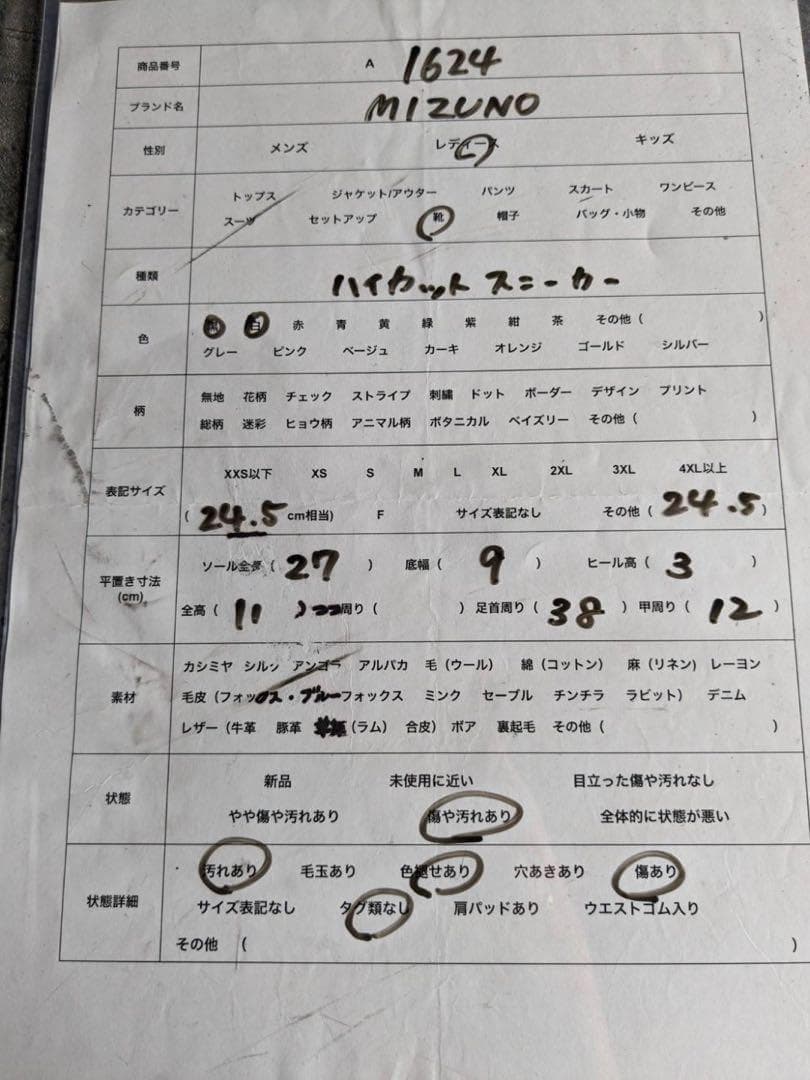 商品番号 A 1624
ブランド名 MIZUNO
性別 メンズ レディース キッズ
カテゴリー トップス ジャケット/アウター パンツ スカート ワンピース
スーツ セットアップ 靴 帽子 バッグ・小物 その他
種類 ハイカットスニーカー
色 黒 白 赤 青 黄 緑 紫 紺 茶 その他 ( )
グレー ピンク ベージュ カーキ オレンジ ゴールド シルバー
柄 無地 花柄 チェック ストライプ 刺繍 ドット ボーダー デザイン プリント
総柄 迷彩 ヒョウ柄 アニマル柄 ボタニカル ペイズリー その他 ( )
表記サイズ XXS以下 XS S M L XL 2XL 3XL 4XL以上
( 24.5 cm相当) F サイズ表記なし その他 ( 24.5 )
平置き寸法 (cm) ソール全長 ( 27 ) 底幅 ( 9 ) ヒール高 ( 3 )
全高 ( 11 ) 周り ( ) 足首周り ( 38 ) 甲周り ( 12 )
素材 カシミヤ シルク アンゴラ アルパカ 毛 (ウール) 綿 (コットン) 麻 (リネン) レーヨン
毛皮 (フォックス・ブルーフォックス ミンク セーブル チンチラ ラビット) デニム
レザー (牛革 豚革 (ラム) 合皮) ボア 裏起毛 その他 ( )
状態 新品 未使用に近い 目立った傷や汚れなし
やや傷や汚れあり 傷や汚れあり 全体的に状態が悪い
状態詳細 汚れあり 毛玉あり 色褪せあり 穴あきあり 傷あり
サイズ表記なし タグ類なし 肩パッドあり ウエストゴム入り
その他 ( )